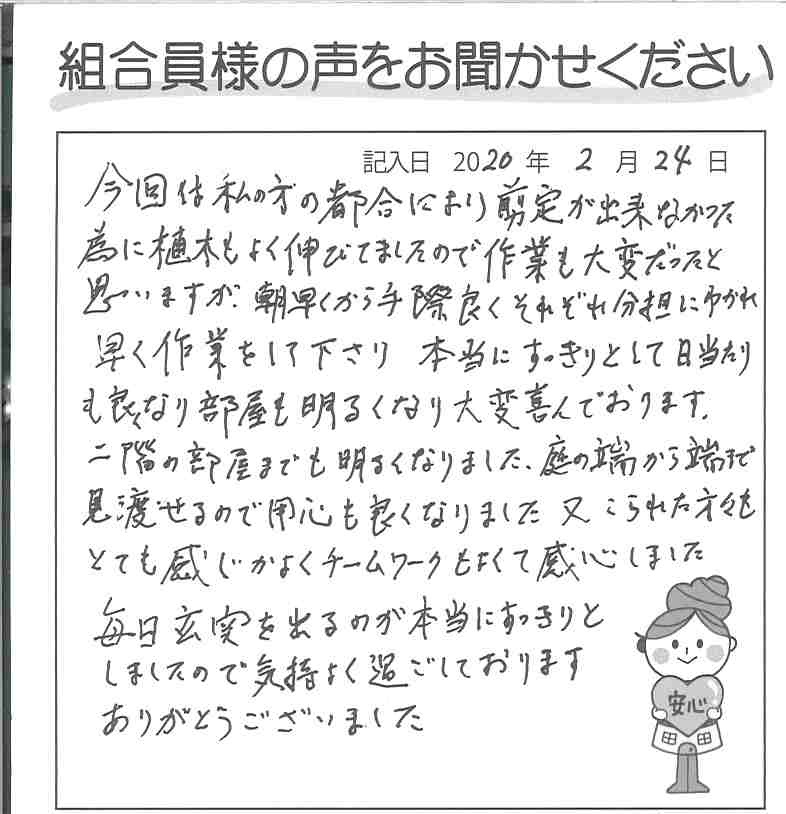 組合員様の声をお聞かせください
記入日 2020年 2月24日
今回は私の方の都合により剪定が出来なかった
為に植木もよく伸びてましたので作業も大変だったと
思いますが、朝早くから手際良くそれぞれ分担にわかれ
早く作業をして下さり 本当にすっきりとして日当たり
も良くなり部屋も明るくなり大変喜んでおります。
二階の部屋までも明るくなりました、庭の端から端まで
見渡せるので用心も良くなりました 又 こられた方々も
とても感じがよくチームワークもよくて感心しました
毎日玄関を出るのが本当にすっきりと
しましたので気持よく過ごしております
ありがとうございました
安心